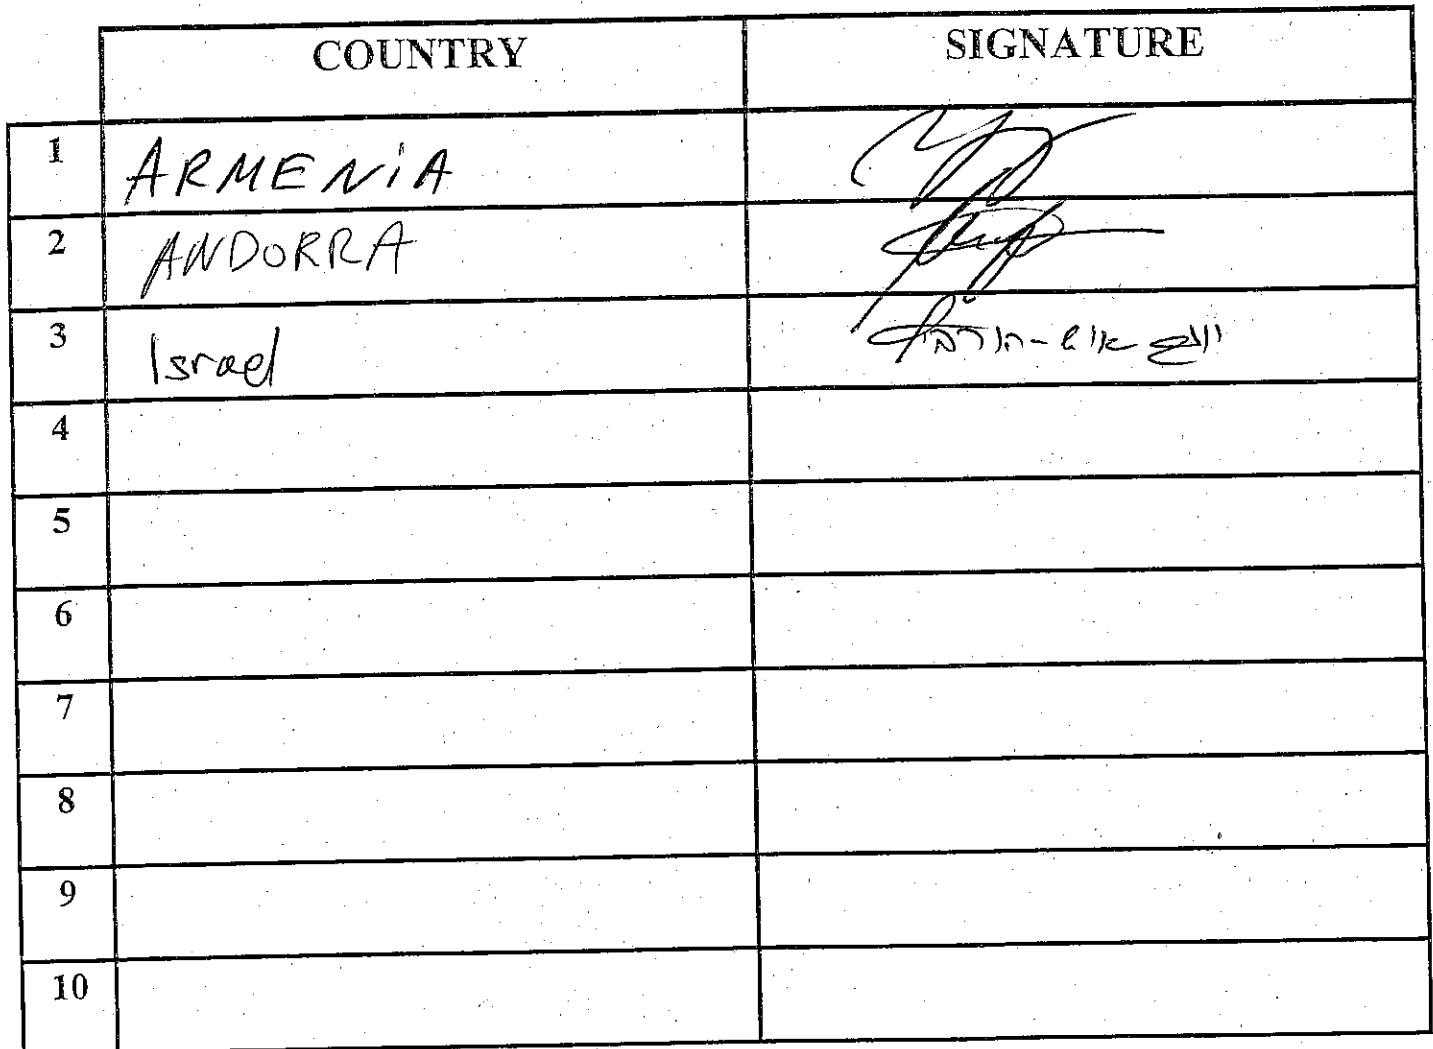 COUNTRY SIGNATURE
1 ARMENiA
2 ANDORRA
3 Israel
4
5
6
7
8
9
10